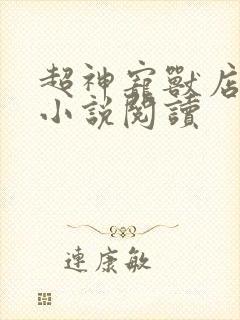 超神寵獸店
小說閱讀
連康敏